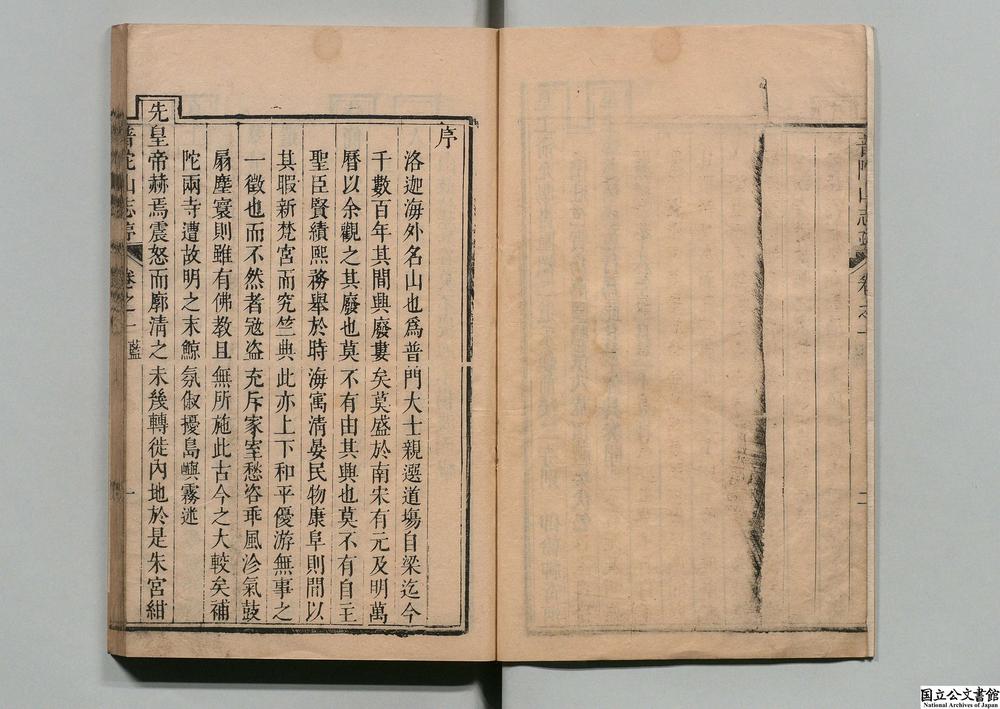 序
洛迦海外名山也爲普門大士親選道塲自梁迄今
千數百年其間興廢婁矣莫盛於南宋有元及明萬
曆以余觀之其廢也莫不有由其興也莫不有自主
聖臣賢績熙務舉於時海寓清晏民物康阜則間以
其暇新梵宮而究竺典此亦上下和平優游無事之
一徵也而不然者宼盗充斥家室愁咨乖風沴氣鼓
扇塵寰則雖有佛教且無所施此古今之大較矣補
陀兩寺遭故明之末鯨氛俶擾島嶼霧迷
先皇帝赫焉震怒而廓清之未幾轉徙內地於是朱宮紺
普陀山志序
卷之一
一
二
国立公文書館
National Archives of Japan